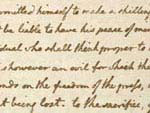 omitted himself to make a shilling
be liable to have his peace of mind
dual she shall think proper to
s however an evil for which the
nds on the freedom of the press,
t being lost. to the sacrifice,